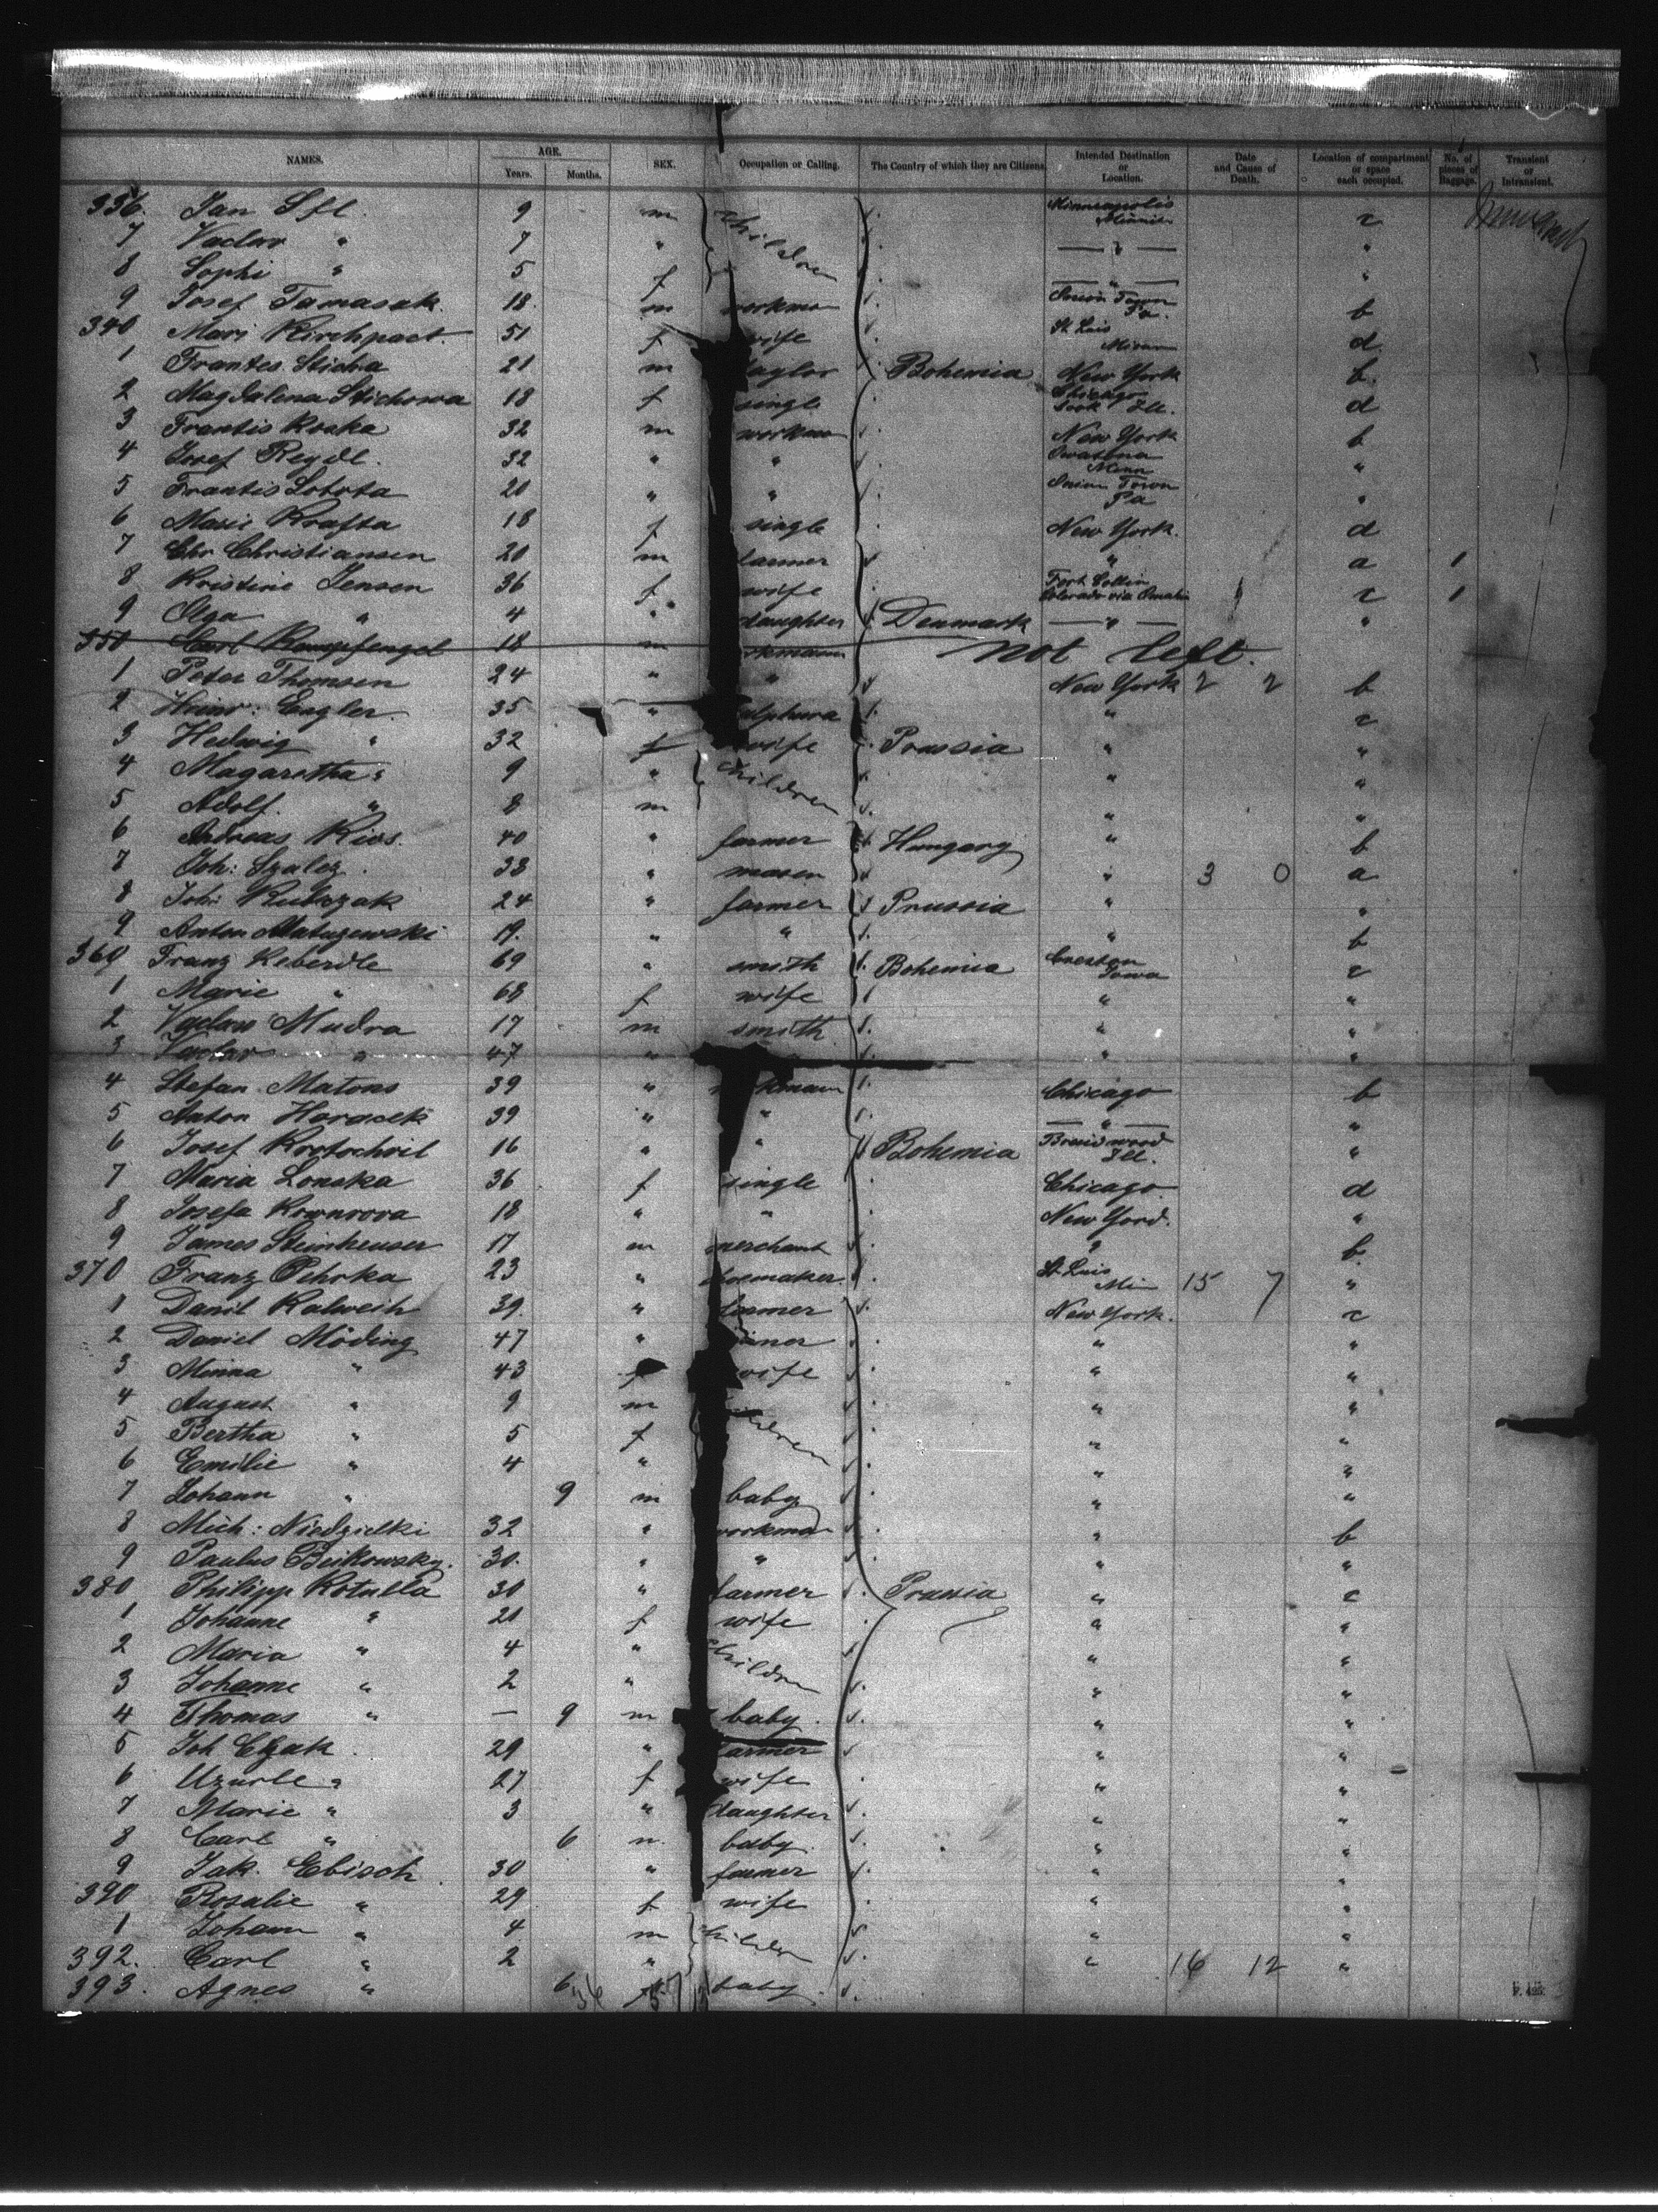 NAMES. AGE. Years. Months. SEX. Occupation or Calling. The Country of which they are Citizens. Intended Destination or Location. Date and Cause of Death. Location of compartment or space each occupied. No. of pieces of Baggage. Transient or Intransient.
336. Jan 9 m children Minneapolis
7 Vaclav " 7 " "
8 Sophi " 5 f " "
9 Josef Tamasak 18 m workman Town Pa. b
340 Mari Kirchpact 51 f wife St Luis d
1 Frantes Sticha 21 m taylor Bohemia New York b
2 Magdalena Stichowa 18 f single Chicago Cook Ill. d
3 Frantis Koska 32 m workman New York b
4 Josef Reydl. 32 " " Owatona Minn "
5 Frantis Lotota 20 " " Town Pa "
6 Marie Krafta 18 f single New York. d
7 Chr Christiansen 20 m farmer " a 1
8 Kristine Jensen 36 f wife Fort Collin Colorado via Omaha c 1
9 Olga " 4 " daughter Denmark " "
350 Carl Kampfengel 18 m workmann not left.
1 Peter Thomsen 24 " " New York 2 2 b
2 Heinr: Engler 35 " " c
3 Hedwig " 32 f wife Prussia " "
4 Magaretha " 9 " children " "
5 Adolf. " 8 m " "
6 Andreas Kiss. 40 " farmer Hungary " b
7 Joh: Szalez. 33 " mason " 3 0 a
8 Joh: Kubszak 24 " farmer Prussia " "
9 Anton Matuzewski 19. " " " b
360 Franz Keberdle 69 " smith Bohemia Creston Iowa c
1 Marie " 68 f wife " "
2 Vaclav Mudra 17 m smith " "
3 Vaclav " 47 " " "
4 Stefan Matous 39 " workmann Chicago b
5 Anton Horacek 39 " " " "
6 Josef Kratochvil 16 " " Bohemia Braidwood Ill. "
7 Maria Lonska 36 f single Chicago d
8 Josefa 18 " " New York. "
9 James Steinheuser 17 m merchant " b
370 Franz Pehrka 23 " shoemaker St Luis Mi 15 7 "
1 Danil Kalweih 39. " farmer New York. c
2 Daniel Möding 47 " miner " "
3 Minna " 43 f wife " "
4 August " 9 m children " "
5 Bertha " 5 f " "
6 Emilie " 4 " " "
7 Johann " 9 m baby " "
8 Mich: Niedzielki 32 " workman " b
9 Paulus Beikowsky. 30. " " " "
380 Philipp Kotulla 30 " farmer Prussia " c
1 Johanne " 21 f wife " "
2 Maria " 4 " children " "
3 Johanne " 2 " " "
4 Thomas " — 9 m baby. " "
5 Joh Czak 29 " farmer " "
6 Uzurle " 27 f wife " "
7 Marie " 3 " daughter " "
8 Carl " 6 m. baby. " "
9 Jak. Ebisch 30 " farmer " "
390 Rosalie " 29 f wife " "
1 Johann " 4 m children " "
392. Carl " 2 " " 16 12 "
393. Agnes " 6 f baby.